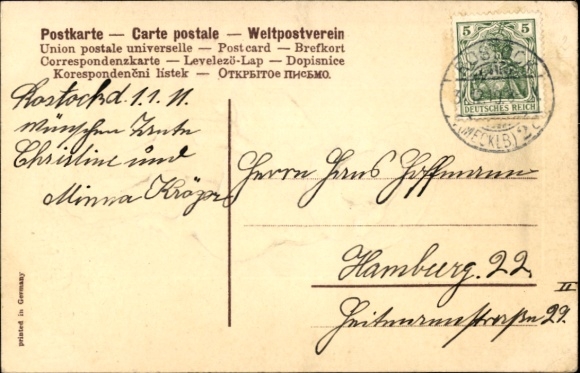 Postkarte — Carte postale — Weltpostverein
Union postale universelle — Postcard — Brefkort
Correspondenzkarte — Levelező-Lap — Dopisnice
Korespondenčni lístek — Открытое письмо.
5 5
DEUTSCHES REICH
ROSTOCK
(MECKLB) 2
Rostock d. 1.1.11.
wünschen
Christine und
Minna
Herrn Hans Hoffmann
Hamburg. 22.
II
Heitmannstraße 29.
printed in Germany